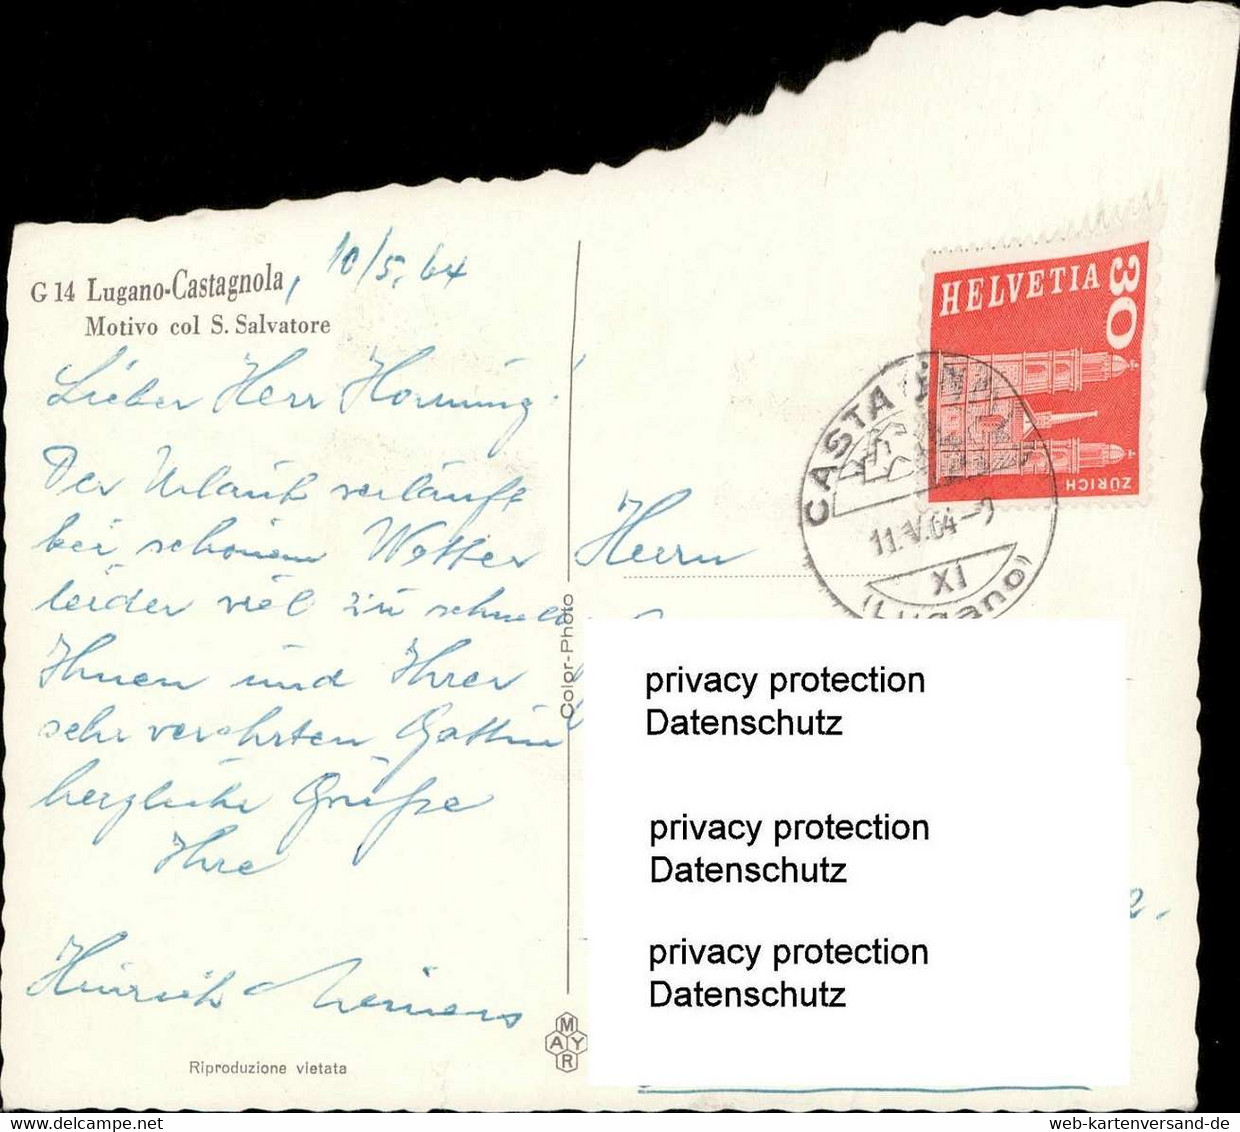 G 14 Lugano-Castagnola, 10/5. 64
Motivo col S. Salvatore
Lieber Herr Hornung!
Der Urlaub verläuft
bei schönem Wetter
leider viel zu schnell.
Ihnen und Ihrer
sehr verehrten Gattin
herzliche Grüße
Ihre
Hinrich
Riproduzione vietata
Color-Photo
MAYR
HELVETIA
30
ZÜRICH
CASTA
11.V.64-9
XI
(Lugano)
Herrn
privacy protection
Datenschutz
privacy protection
Datenschutz
privacy protection
Datenschutz
web-kartenversand-de